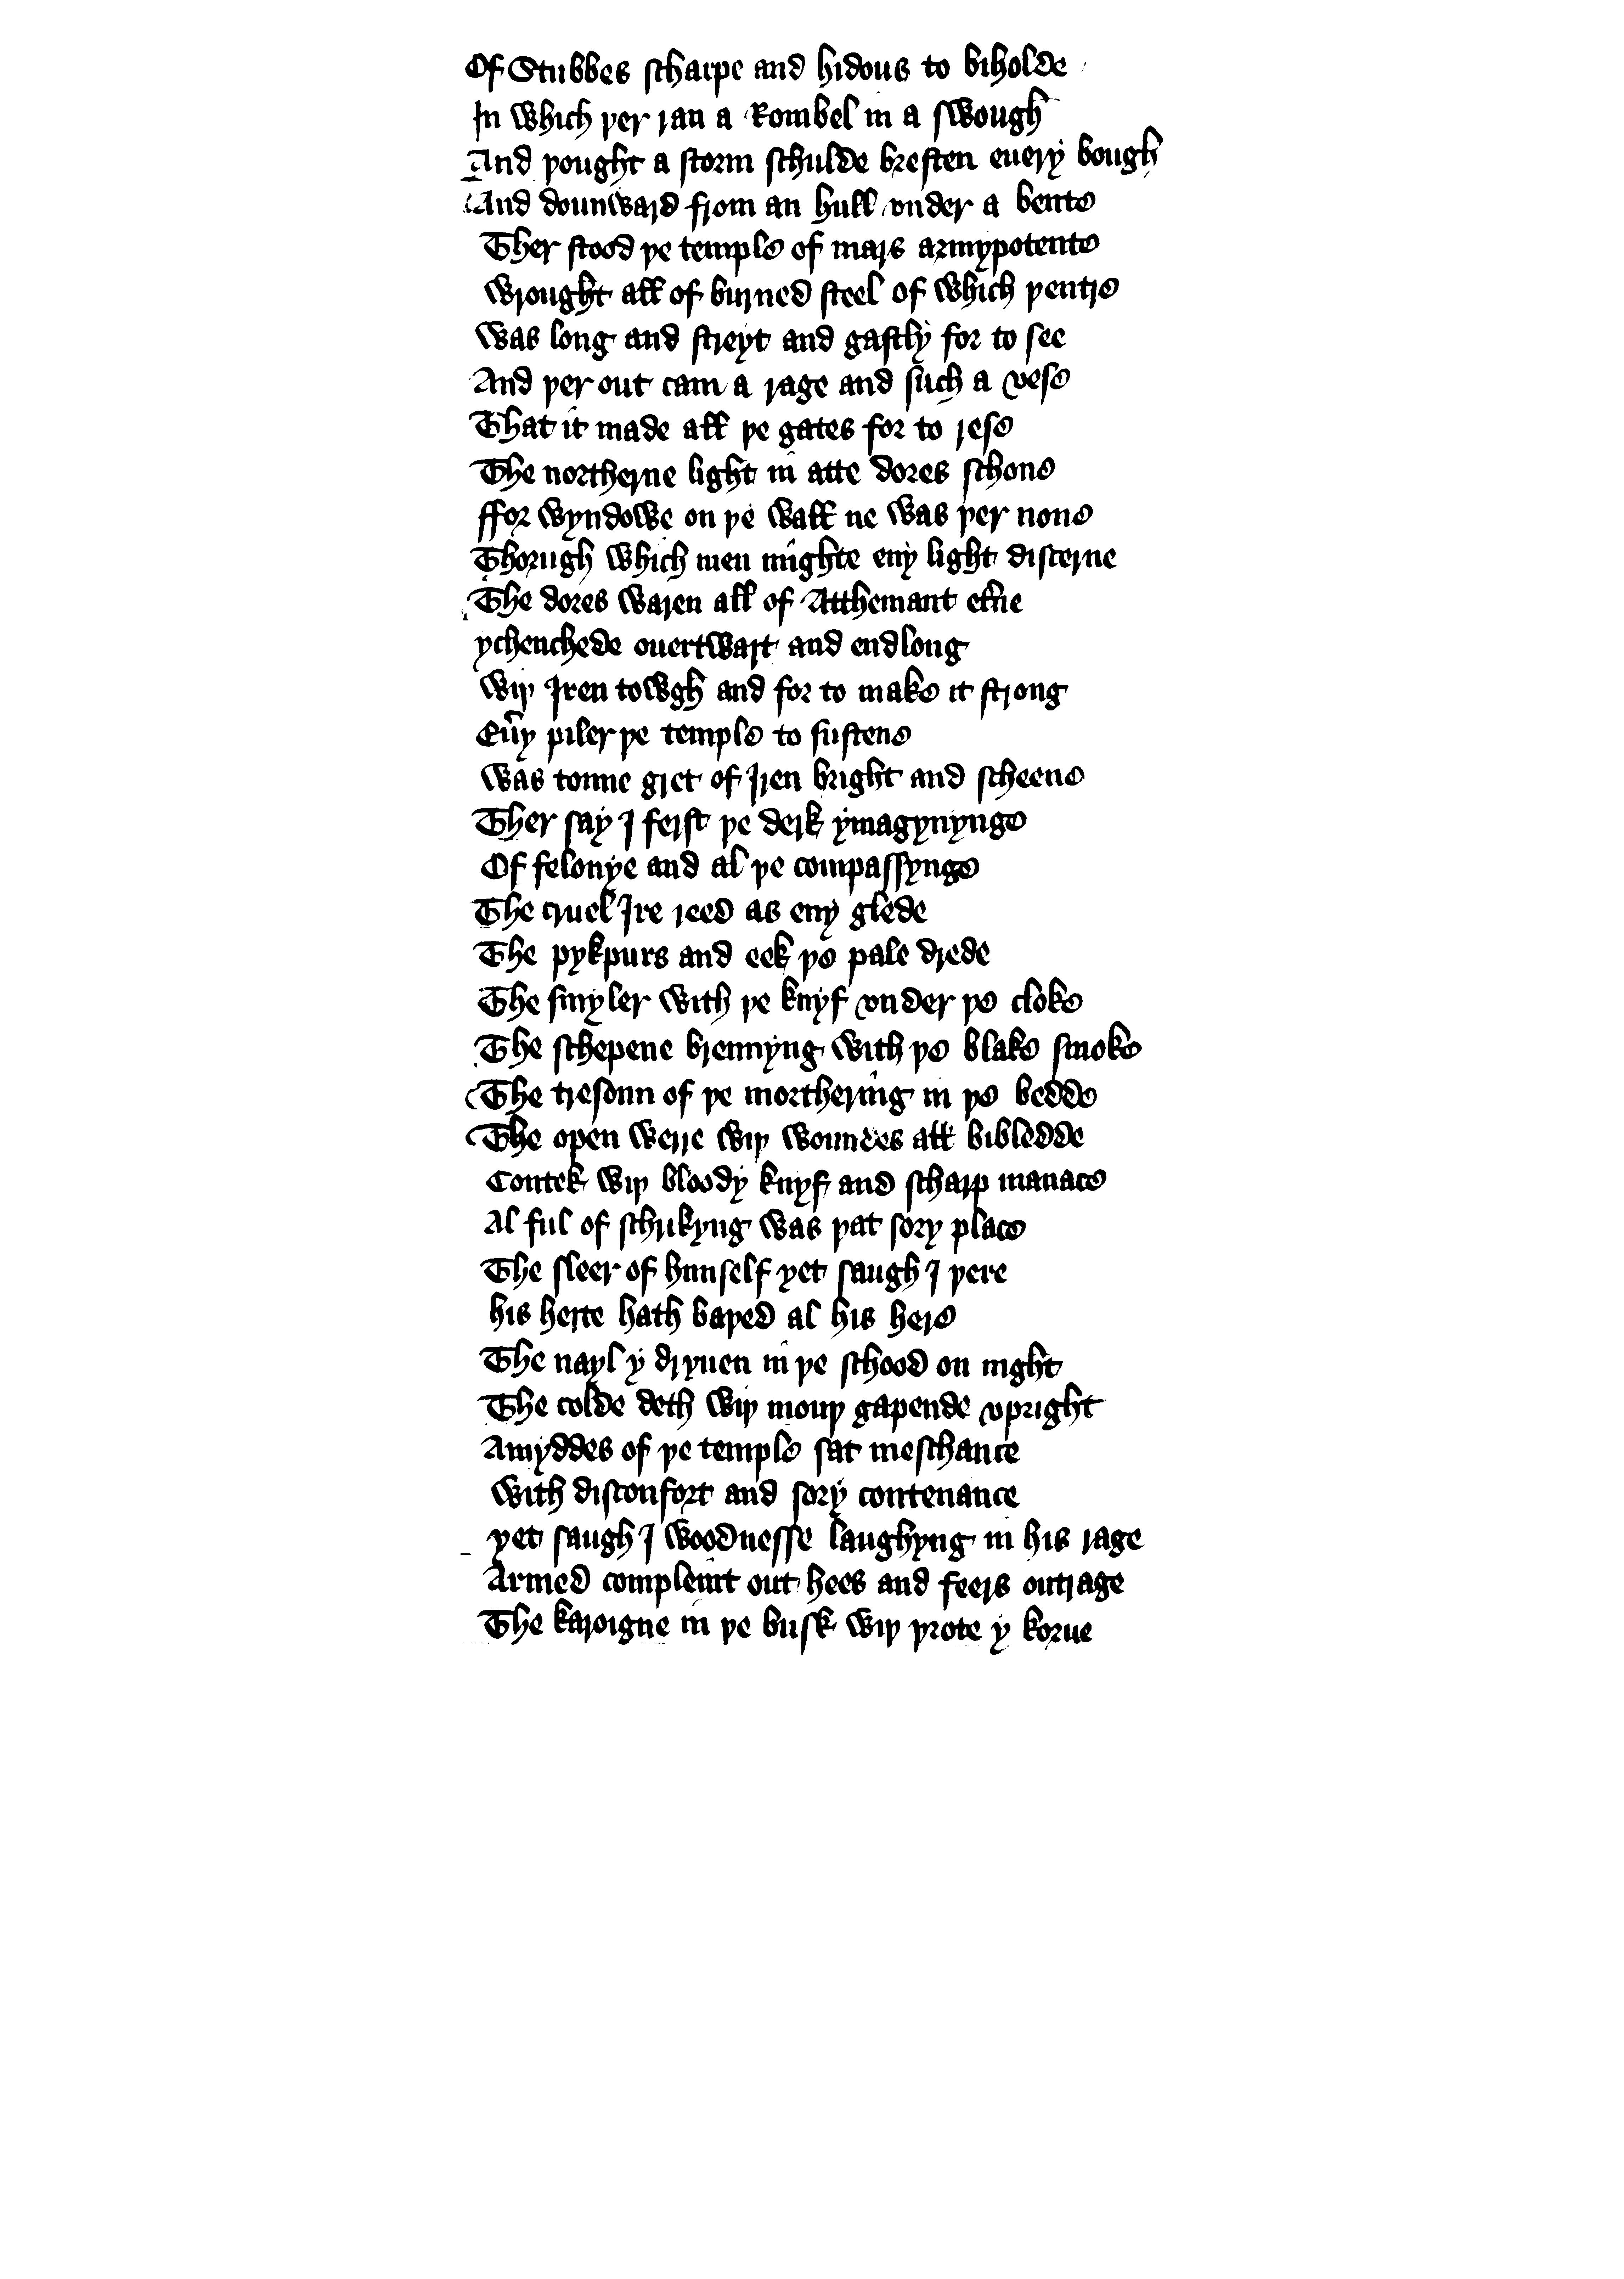 Of Stubbes scharpe and hidous to biholde
In which þer ran a Rombel in a swough
And þought a storm schulde bresten euery bough
And dounward from an hull vnder a bente
Ther stood þe temple of mars armypotente
Wrought all of burned steel of which þentre
Was long and streyt and gastly for to see
And þer out cam a rage and such a vese
That it made all þe gates for to rese
The northerne light in atte dores schone
ffor wyndowe on þe wall ne was þer none
Thorugh which men mighte eny light discerne
The dores waren all of Atthemant et̉ne
ychenchede ouertwart and endlong
Wiþ Iren towgh and for to make it strong
Eủy piler þe temple to sustene
Was tonne gret of Iren bright and scheene
Ther say I ferst þe derk ymagynynge
Of felonye and al þe compassynge
The cruel Ire reed as eny glede
The pykpurs and eek þe pale drede
The smyler with þe knyf vnder þe cloke
The schepene brennyng with þe blake smoke
The tresoun of þe morthering in þe bedde
The open werre wiþ woundes all bibledde
Contek wiþ bloody knyf and scharp manace
Al ful of schrikyng was þat sory place
The sleer of himself yet saugh I þere
his herte hath baþed al his here
The nayl y dryuen in þe schood on night
The colde deth wiþ mouþ gapende vpright
Amyddes of þe temple sat meschance
With disconfort and sory contenance
yet saugh I woodnesse laughyng in his rage
Armed compleint out hees and feers outrage
The karoigne in þe busk wiþ þrote y korue